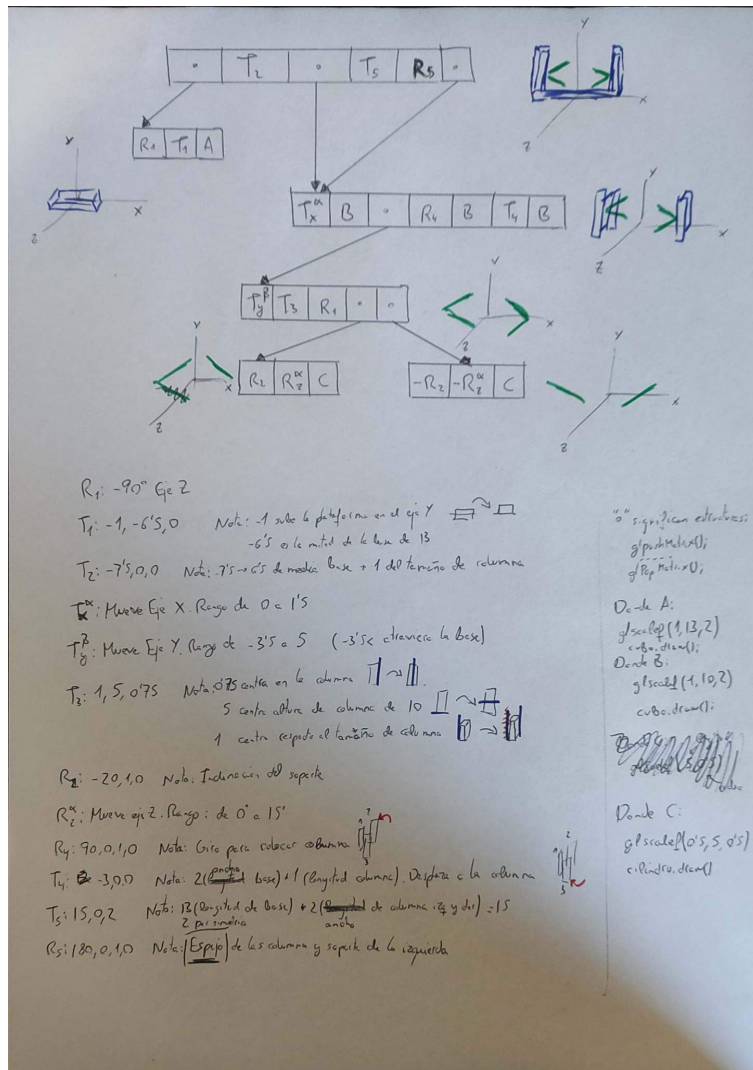 ° T₂ ° T₅ R₅ °
Y
X
Z
R₁ T₁ A
Y
X
Z
Tₓ^α B ° R₄ B T₄ B
Y
X
Z
T_y^β T₃ R₁ ° °
Y
X
Z
R₂ R_z^α C
-R₂ -R_z^α C
Y
X
Z
Y
X
Z
R₁: -90° Eje Z
T₁: -1, -6'5, 0 Nota: -1 sube la plataforma en el eje Y
-6'5 es la mitad de la base de 13
T₂: -7'5, 0, 0 Nota: -7'5 → 6'5 de media base + 1 del tamaño de columna
Tₓ^α: Mueve Eje X. Rango de 0 a 1'5
T_y^β: Mueve Eje Y. Rango de -3'5 a 5 (-3'5< atraviesa la base)
T₃: 1, 5, 0'75 Nota: 0'75 centra en la columna
5 centra altura de columna de 10
1 centra respecto al tamaño de columna
R₂: -20, 1, 0 Nota: Inclinación del soporte
R_z^α: Mueve eje Z. Rango: de 0° a 15'
R₄: 90, 0, 1, 0 Nota: Giro para colocar columna
T₄: -3, 0, 0 Nota: 2 (ancho base) + 1 (longitud columna). Desplaza a la columna
T₅: 15, 0, 2 Nota: 13 (longitud de base) + 2 (ancho de columna izq y der) = 15
2 por simetría
R₅: 180, 0, 1, 0 Nota: Espejo de las columna y soporte de la izquierda
"°" significan estructuras:
glpushMatrix();
glPopMatrix();
Donde A:
glscalef(1,13,2)
cubo.draw();
Donde B:
glscalef(1,10,2)
cubo.draw();
Donde C:
glscalef(0'5,5,0'5)
cilindro.draw()